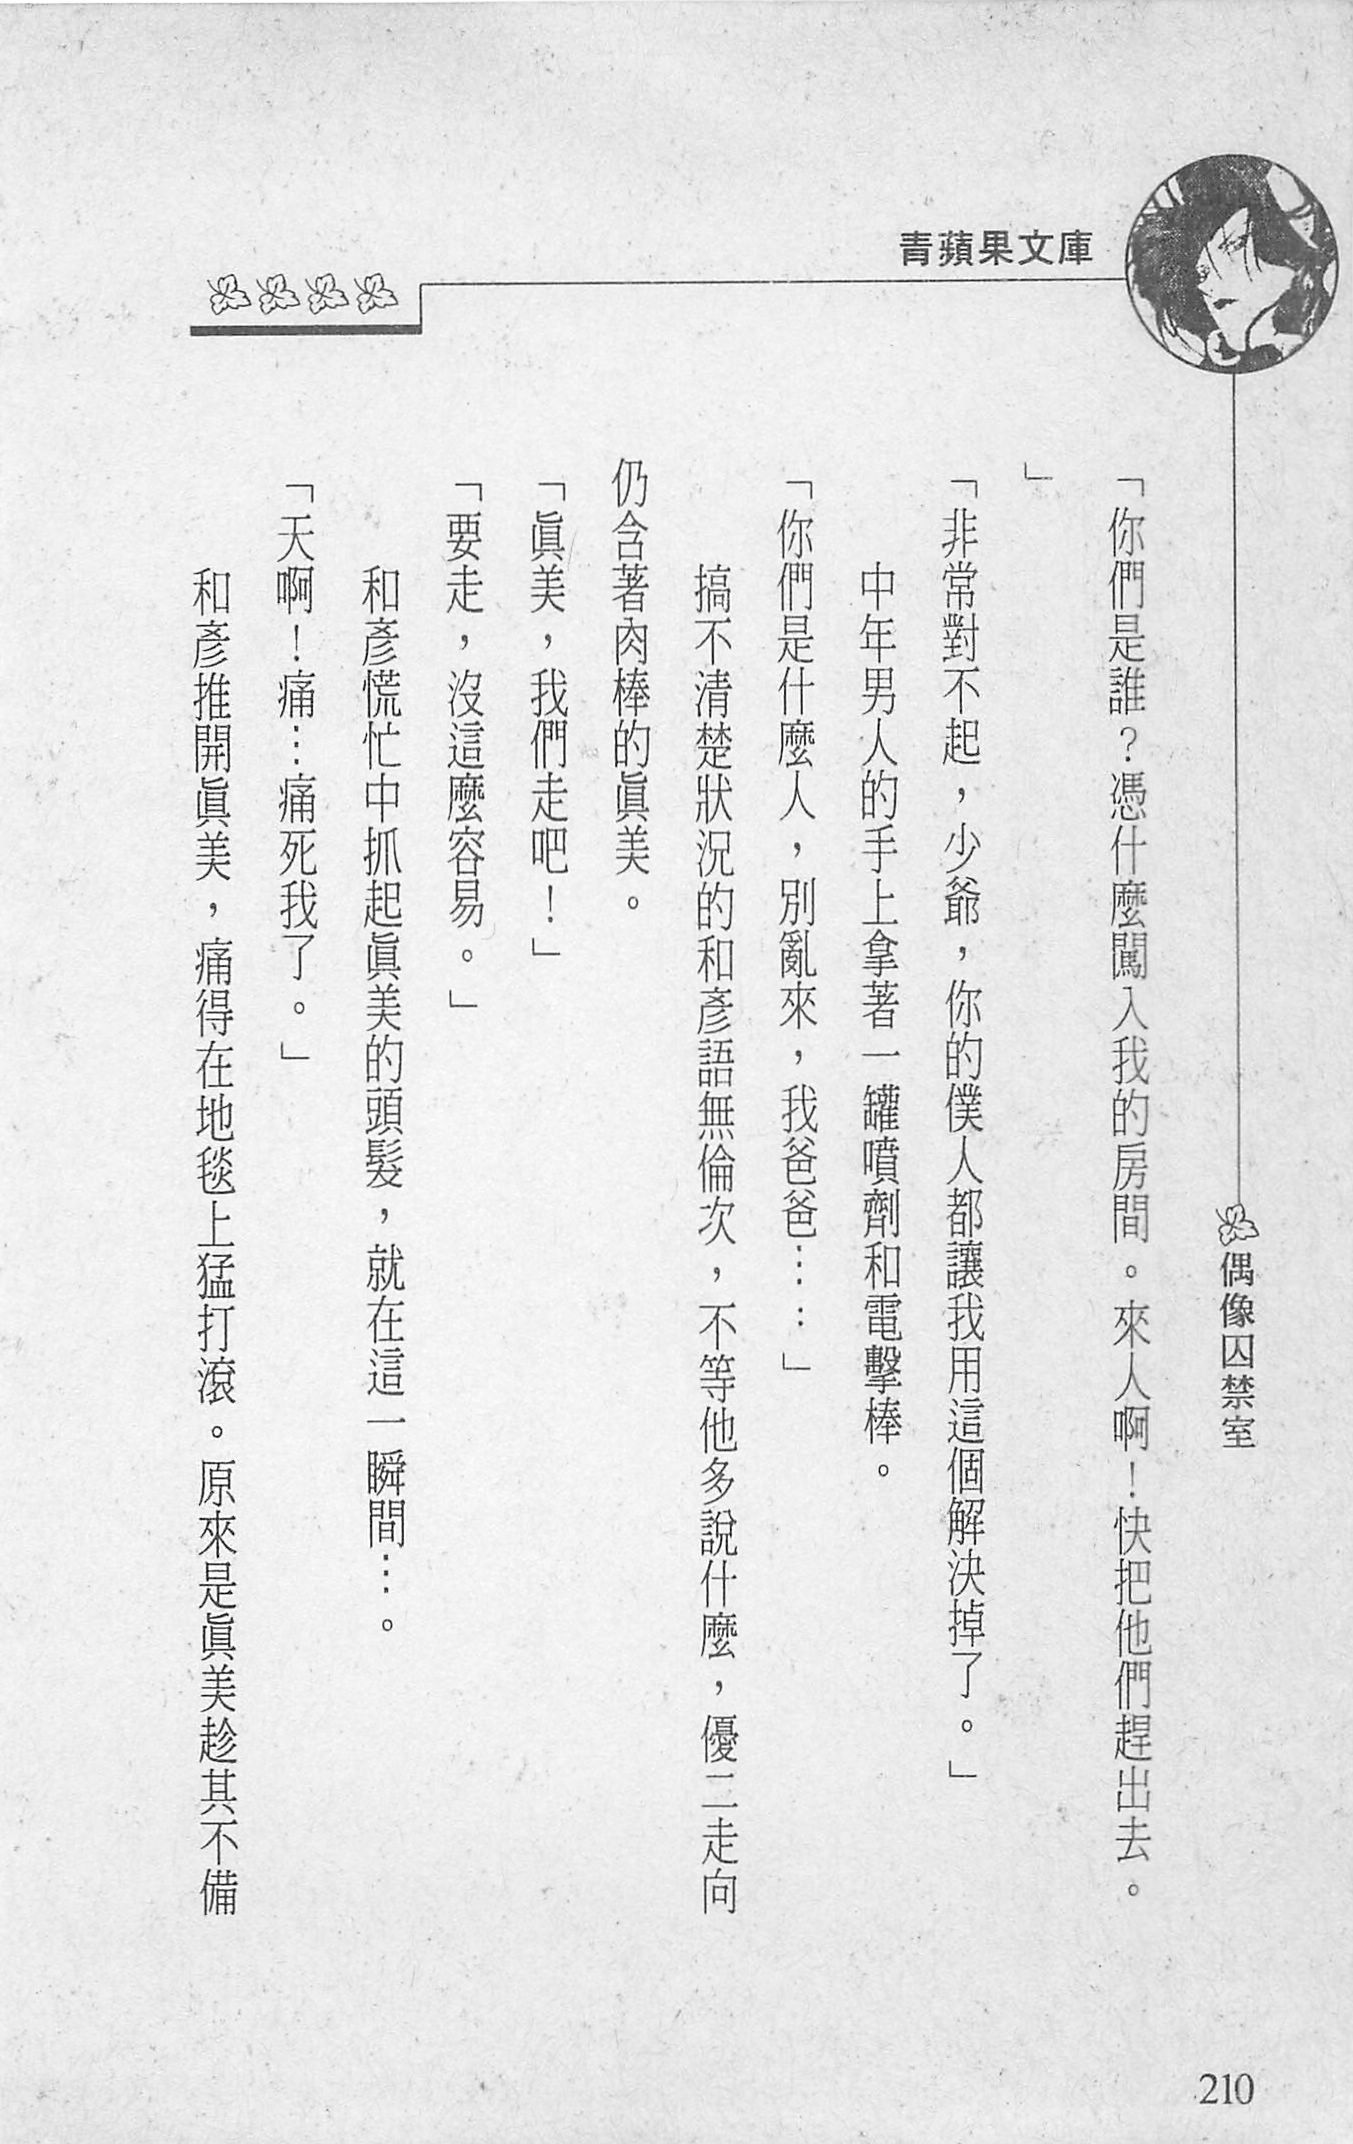 青蘋果文庫
偶像囚禁室
「你們是誰？憑什麼闖入我的房間。來人啊！快把他們趕出去。
」
「非常對不起，少爺，你的僕人都讓我用這個解決掉了。」
中年男人的手上拿著一罐噴劑和電擊棒。
「你們是什麼人，別亂來，我爸爸……」
搞不清楚狀況的和彥語無倫次，不等他多說什麼，優二走向
仍含著肉棒的眞美。
「眞美，我們走吧！」
「要走，沒這麼容易。」
和彥慌忙中抓起眞美的頭髮，就在這一瞬間…。
「天啊！痛…痛死我了。」
和彥推開眞美，痛得在地毯上猛打滾。原來是眞美趁其不備
210